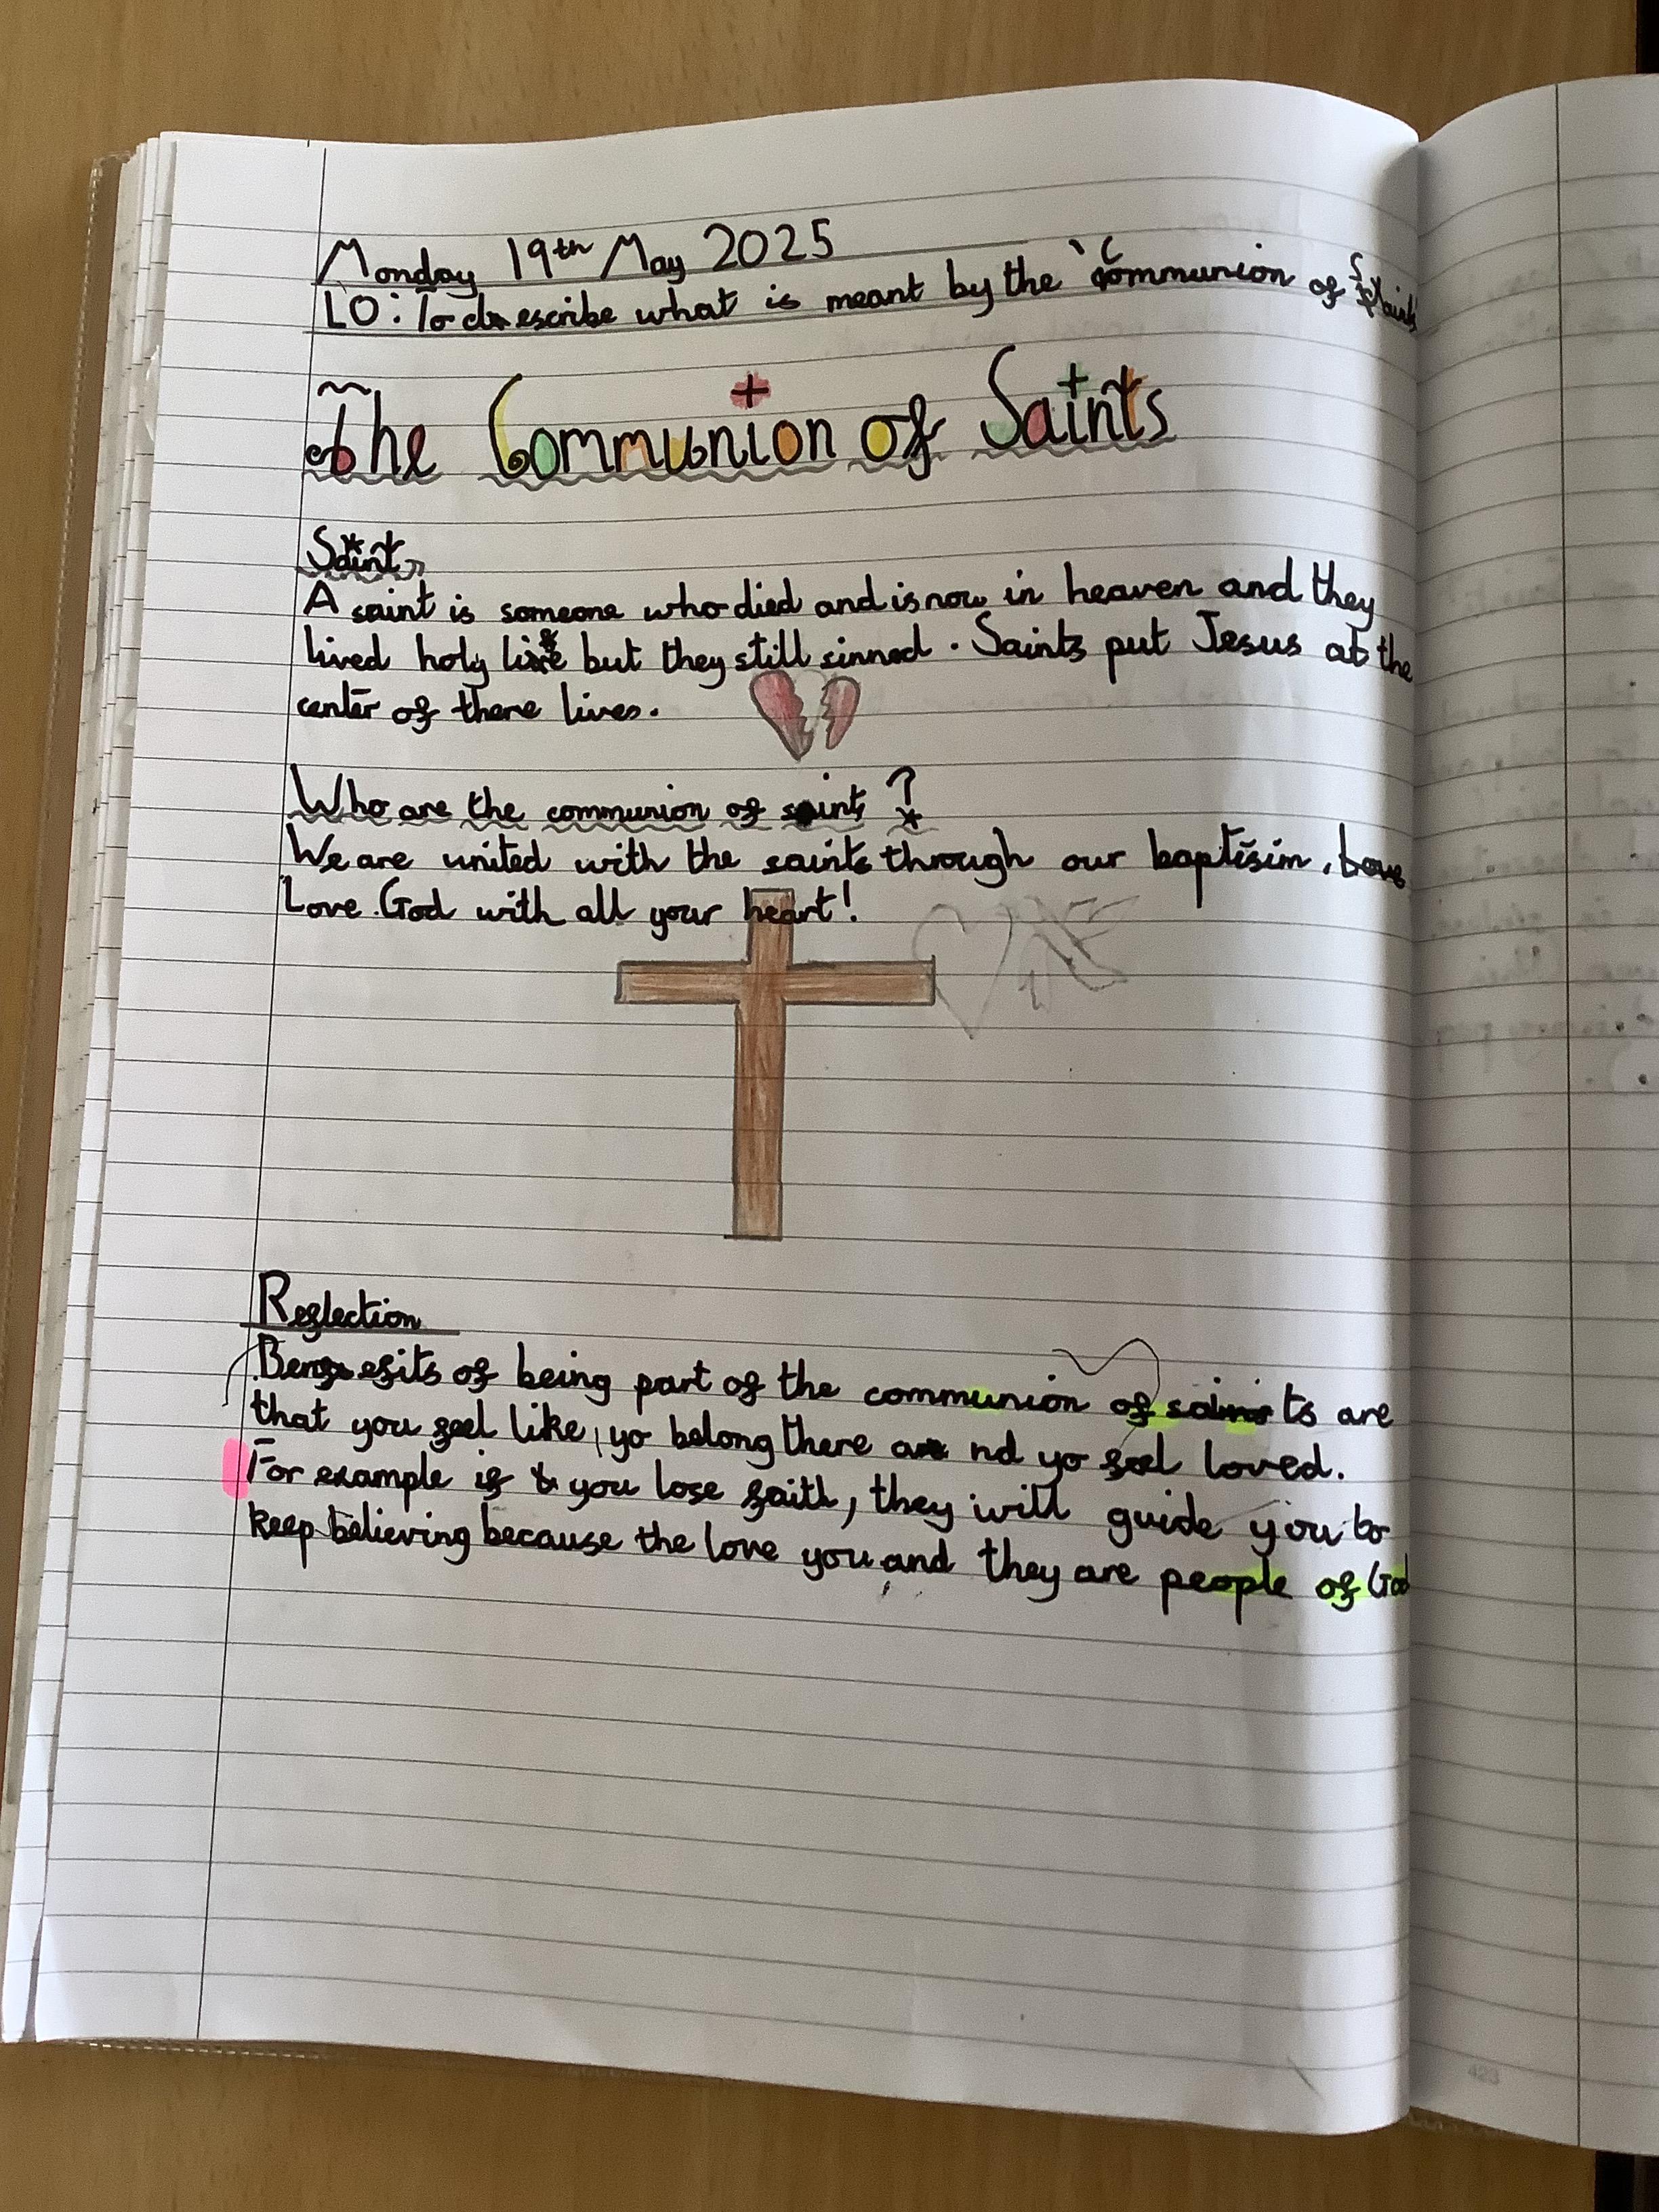 Monday 19th May 2025
LO: To describe what is meant by the 'Communion of Saints'
The Communion of Saints
Saint
A saint is someone who died and is now in heaven and they
lived holy life but they still sinned. Saints put Jesus at the
center of there lives.
Who are the communion of saints?
We are united with the saints through our baptisim.
Love God with all your heart!
Reflection
Benefits of being part of the communion of saints are
that you feel like yo belong there and yo feel loved.
For example if you lose faith, they will guide you to
keep believing because the love you and they are people of God